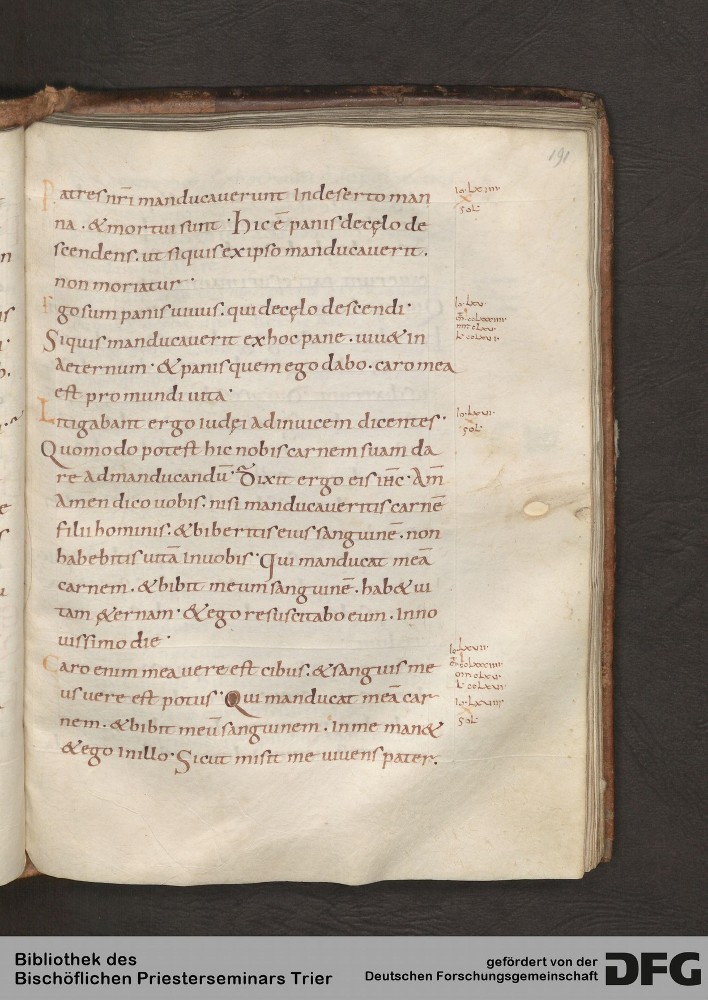 191
Patres nr̄i manducauerunt Indeserto man
na . & mortui sunt · hic ē panis decęlo de
scendens . ut siquis exipso manducauerit .
non moriatur ·
Ego sum panis uiuus . qui decęlo descendi ·
Siquis manducauerit exhoc pane . uiu& in
Aeternum · & panis quem ego dabo . caro mea
est pro mundi uita ·
Litigabant ergo iudęi adinuicem dicentes ·
Quomodo potest hic nobis carnem suam da
re admanducandū · Dixit ergo eis ihc · Am̄
Amen dico uobis . nisi manducaueritis carnē
filii hominis . & biberitis eius sanguinē . non
habebitis uitā inuobis · Qui manducat meā
carnem . & bibit meum sanguinē . hab& ui
tam &ernam · & ego resuscitabo eum . Inno
uissimo die ·
Caro enim mea uere est cibus . & sanguis me
us uere est potus · Qui manducat meā car
nem . & bibit meū sanguinem . in me man&
& ego in illo · Sicut misit me uiuens pater .
Bibliothek des
Bischöflichen Priesterseminars Trier
gefördert von der
Deutschen Forschungsgemeinschaft
DFG